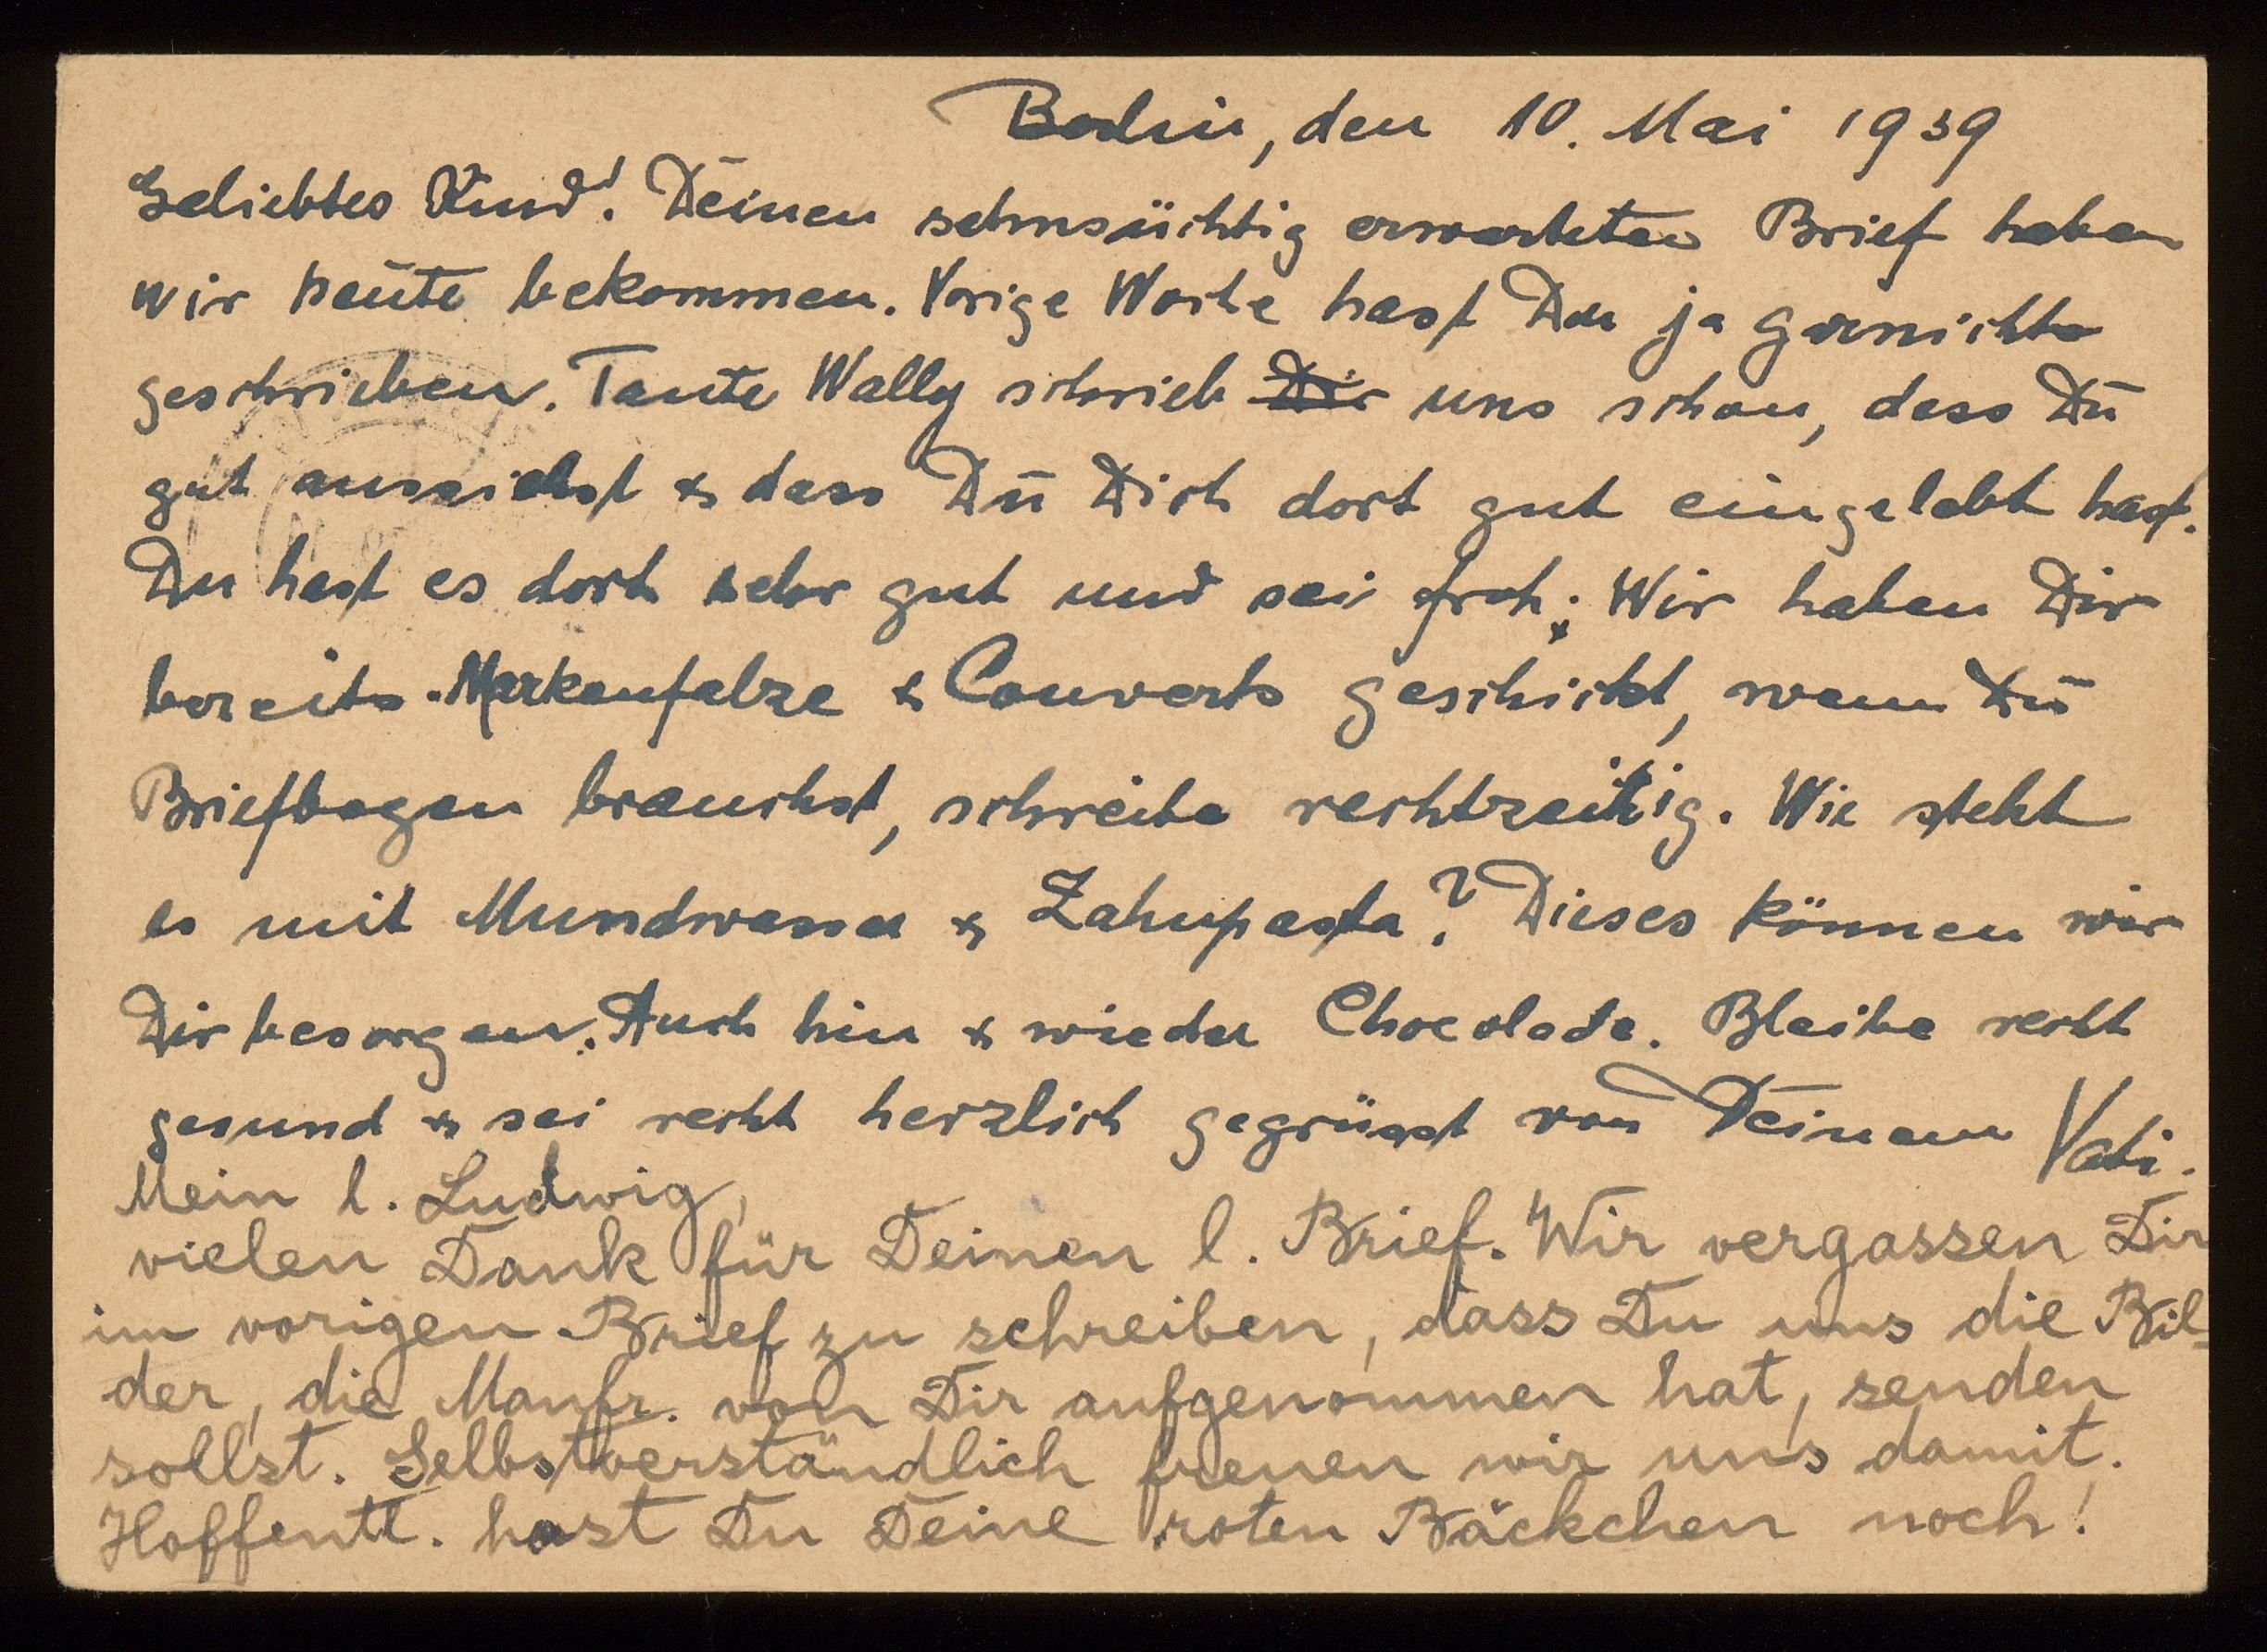 Berlin, den 10. Mai 1939
Geliebtes Kind! Deinen sehnsüchtig erwarteten Brief haben
wir heute bekommen. Vorige Woche hast Du ja garnichts
geschrieben. Tante Wally schrieb Dir uns schon, dass Du
gut aussiehst & dass Du Dich dort gut eingelebt hast.
Du hast es dort sehr gut und sei froh. Wir haben Dir
bereits Markenfalze & Couverts geschickt, wenn Du
Briefbogen brauchst, schreibe rechtzeitig. Wie steht
es mit Mundwasser & Zahnpasta? Dieses können wir
Dir besorgen. Auch hin & wieder Chocolade. Bleibe recht
gesund & sei recht herzlich gegrüsst von Deinem Vati.
Mein l. Ludwig,
vielen Dank für Deinen l. Brief. Wir vergassen Dir
im vorigen Brief zu schreiben, dass Du uns die Bil-
der, die Manfr. von Dir aufgenommen hat, senden
sollst. Selbstverständlich freuen wir uns damit.
Hoffentl. hast Du Deine roten Bäckchen noch!